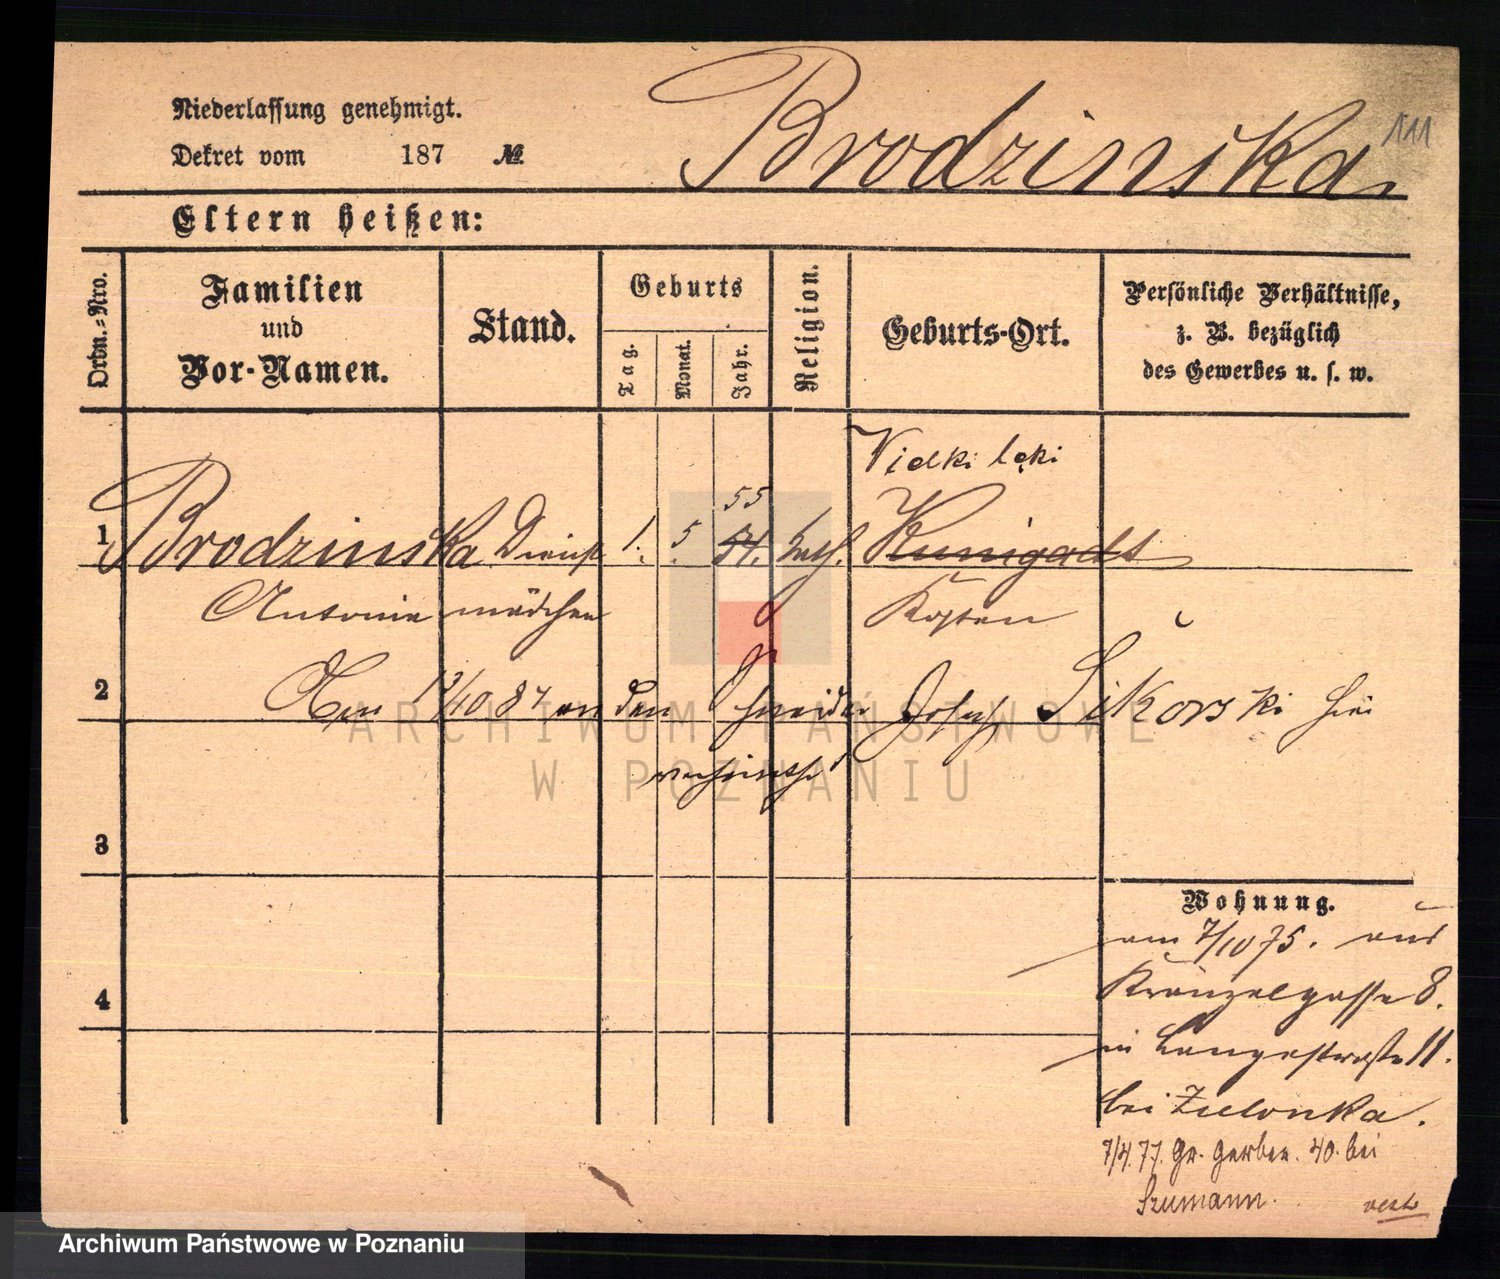 Niederlassung genehmigt.
Dekret vom 187 №
Brodzinska.
111
Eltern heißen:
Ordn.-Nro.
Familien
und
Vor-Namen.
Stand.
Geburts
Tag.
Monat.
Jahr.
Religion.
Geburts-Ort.
Persönliche Verhältnisse,
z. B. bezüglich
des Gewerbes u. s. w.
Vielki lęki
55
1 Brodzinska Dienst 1. 5. 54. kath.
Antonie mädchen Kosten
2 Am 12/10 87 an den Schneider Joseph Sikorski hier
verheirathet
3
4
Wohnung.
am 7/10 75. aus
Kränzelgasse 8.
in Langestraße 11.
bei Zielonka.
7/4. 77. Gr. Gerber. 40. bei
Szumann.
ARCHIWUM PAŃSTWOWE
W POZNANIU
Archiwum Państwowe w Poznaniu